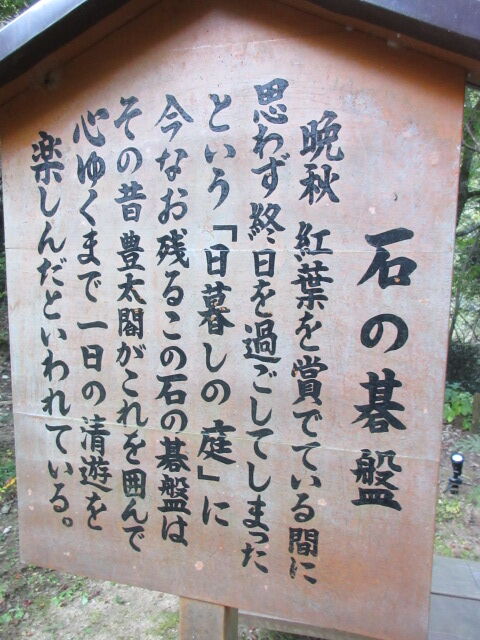 石の碁盤
晩秋 紅葉を賞でている間に
思わず終日を過ごしてしまった
という「日暮しの庭」に
今なお残るこの石の碁盤は
その昔豊太閤がこれを囲んで
心ゆくまで一日の清遊を
楽しんだといわれている。